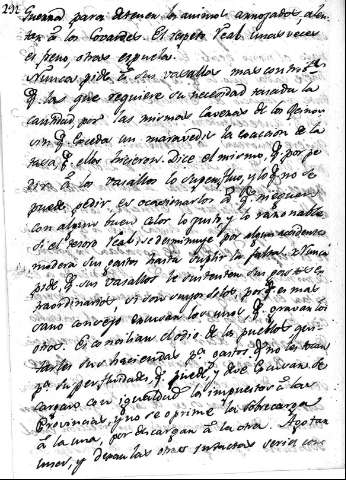 292
Guerra para detener los animos arrojados, alen-
tar â los Covardes. El respeto Real unas veces
es freno, otras espuela.
Nunca pide â sus vasallos mas contrib.s
q. las que requiere su necesidad tasada la
cantidad por las mismas Cavezas de los Reinos
sin q. exceda un maravedis la exaccion de la
tasa q. ellos hicieron. Dice el mismo, q. por pe-
dir â los vasallos lo superfluo, y lo q. no se
puede pedir es ocasionarlos â q. nieguen
con algun buen color lo justo, y lo razonable
Si el thesoro Real se desminuye por algun accidente
modera sus gastos hasta suplir la falta. Nunca
pide q. sus vasallos le sustenten sus gastos ex-
traordinarios si son suyos solos, por q. es mas
sano consejo escusan los unos, q. gravan los
otros. Se concilian el odio de los pueblos quien
sus haciendas p.a gastos q. no les tocan
p.a superfluidades, q. puede, y debe Escusar de
cargar con igualdad los impuestos â las
Provincias, q. no se oprime la sobrecarga
â la una, por descargar â la otra. Agotan
unos, y dejan las otras intactas seria con